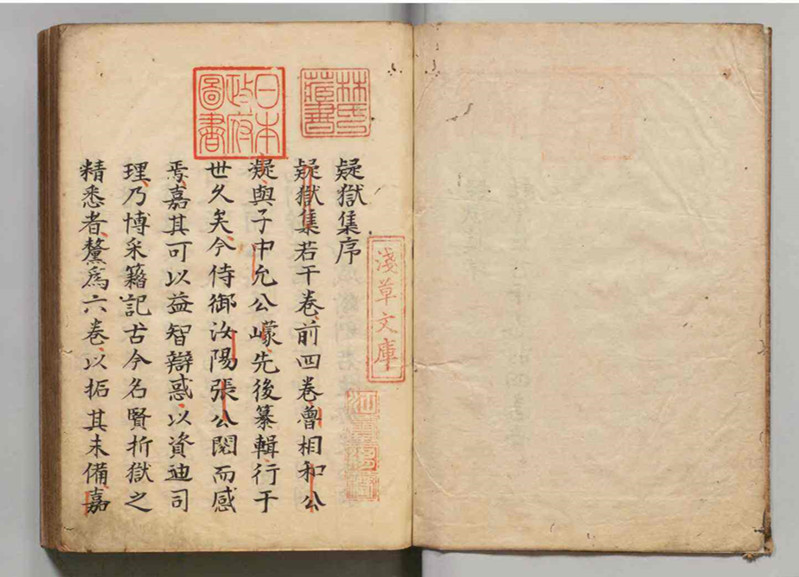 林氏
藏書
日本
政府
圖書
疑獄集序
疑獄集若干卷前四卷魯相和公
凝與子中允公㠓先後纂輯行于
世久矣今侍御汝陽張公閱而感
焉嘉其可以益智辯惑以資廸司
理乃博采籍記古今名賢折獄之
精悉者釐爲六卷以拓其未備嘉
淺草文庫
江雲渭樹